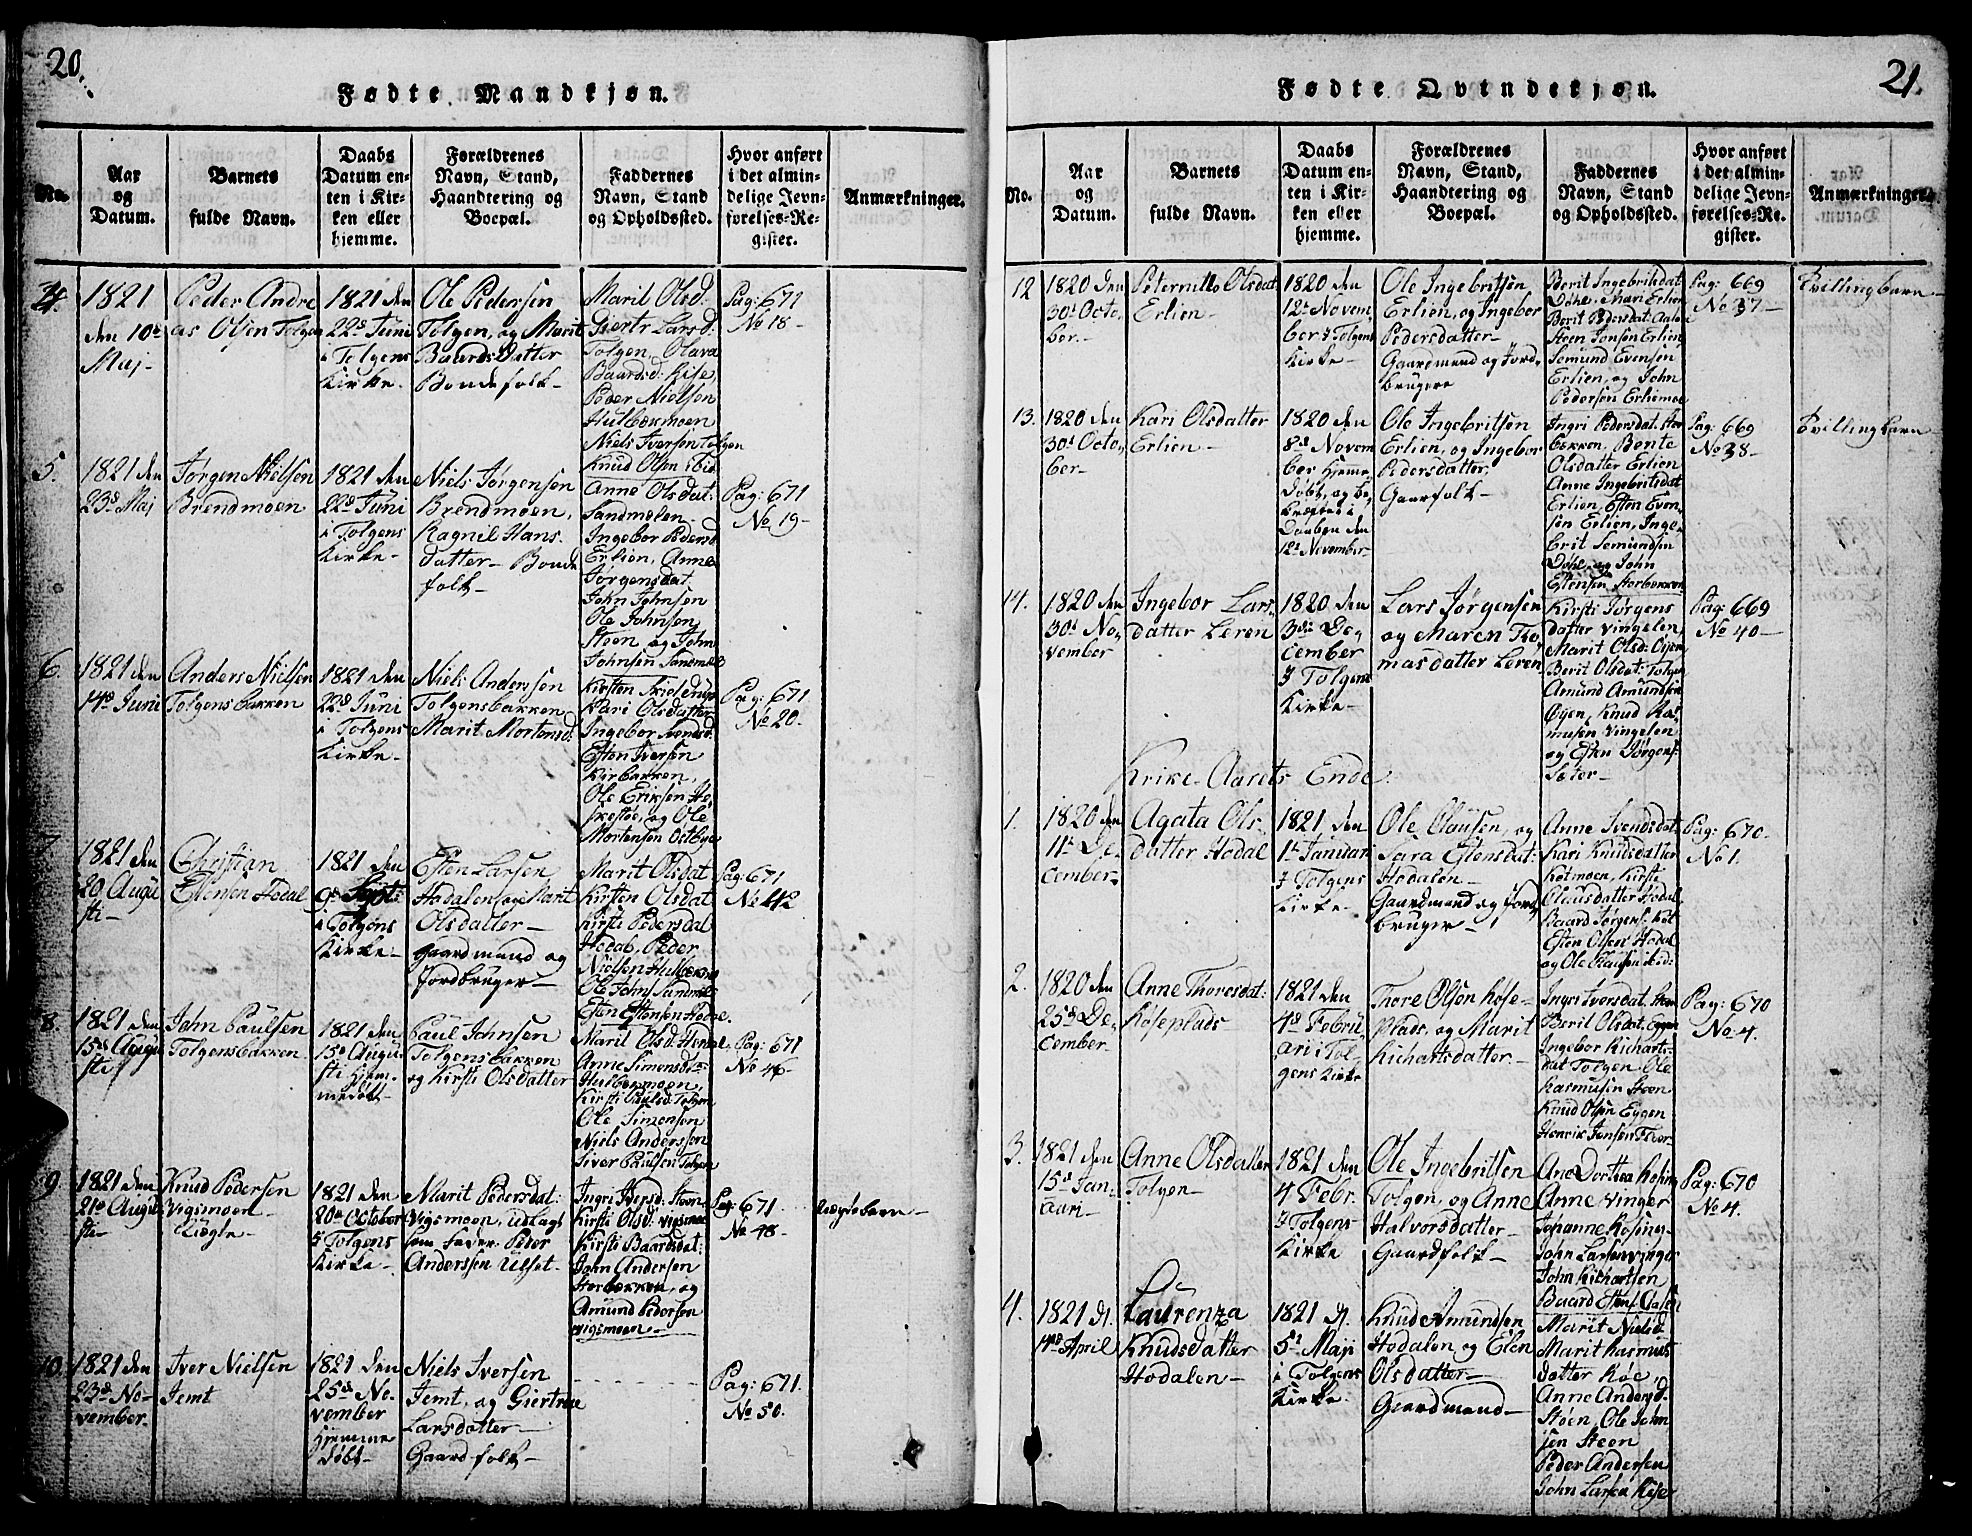 20.
Fødte Mandkjøn.
No.
Aar
og
Datum.
Barnets
fulde Navn.
Daabs
Datum en-
ten i Kir-
ken eller
hjemme.
Forældrenes
Navn, Stand,
Haandtering og
Boepæl.
Faddernes
Navn, Stand
og Opholdssted.
Hvor anført
i det almin-
delige Jevn-
førelses-Re-
gister.
Anmærkninger.
4.
1821
den 10de
Maj-
Peder Andre
as Olsen Tolgen
1821 den
22d Juni
i Tolgens
Kirke.
Ole Pedersen
Tolgen, og Marit
Baards Datter
Bondefolk-
Marit Olsd:
Giertr Larsd:
Tolgen, Olava
Baardsd: Kise,
Peder Nielsen
Hulbækmoen
Niels Iversen Tolgen
Knud Olsen
Pag: 671
No 18-
5.
1821 den
23d Maj
Jørgen Nielsen
Brendmoen
1821 den
22d Juni
i Tolgens
Kirke-
Niels Jørgensen
Brendmoen,
Ragnil Hans
datter- Bonde
folk-
Anne Olsdat:
Sandmælen
Ingebor Pedersd
Erlien, Anne
Jørgensdat:
John Johnsen
Ole Johnsen
Steen, og John
Johnsen
Pag: 671
No 19-
6.
1821 den
14d Juni
Anders Nielsen
Tolgensbakken
1821 den
22d Juni
i Tolgens
Kirke-
Niels Anderssen
Tolgensbakken
Marit Mortensd:
Kirsten
Kari Olsdatter
Ingebor
Esten Iversen
Kirbakken,
Ole Eriksen
og Ole
Mortensen
Pag: 671
No 20-
7
1821 den
20 Augu
sti-
Christian
Estensen Hodal
1821 den
9de Sept:
i Tolgens
Kirke-
Esten Larsen
Hodalen og Marit
Olsdatter-
Gaardmand og
Jordbruger-
Marit Olsdat
Kirsten Olsdat
Kirsti Pedersdat
Hodal, Peder
Nielsen
Ole John
Esten Estensen
Pag: 671
No 42
8.
1821 den
15de Augu
sti
John Paulsen
Tolgensbakken
1821 den
15d Augu
sti hjem-
medøbt-
Paul Johnsen
Tolgensbakken
og Kirsti Olsdatter
Marit Olsd:
Anne Simensd
Hulbekmoen,
Kirsti Paulsd: Tolgen
Ole Simensen
Niels Anderssen
Siver Paulsen Tolgen
Pag: 671
No 46-
9
1821 den
21d Augu
sti-
Knud Pedersen
Vigsmoen
Uægte-
1821 den
20de October
i Tolgens
Kirke-
Marit Pedersdat:
Vigsmoen, udlagt
som Fader Peder
Anderssen Ulset-
Ingri
Kirsti Olsd: Vigsmoe
Kirsti Baardsdat:
John Andersen
Storbækken, og
Amund Pedersen
Vigsmoen-
Pag: 671
No 48-
Uægte barn-
10.
1821 den
23d No-
vember.
Iver Nielsen
Jemt
1821 den
25de No-
vember
hjemme
døbt-
Niels Iversen
Jemt, og Giertrue
Larsdatter-
Gaardfolk-
Pag: 671.
No 50.
21.
Fødte Qvindekjøn.
No.
Aar
og
Datum.
Barnets
fulde Navn.
Daabs
Datum en-
ten i Kir-
ken eller
hjemme.
Forældrenes
Navn, Stand,
Haandtering og
Boepæl.
Faddernes
Navn, Stand
og Opholdssted.
Hvor anført
i det almin-
delige Jevn-
førelses-Re-
gister.
Anmærkninger.
12
1820 den
30d Octo-
ber-
Peternille Olsdat
Erlien-
1820 den
12te Novem
ber I Tolgens
Kirke-
Ole Ingebritsen
Erlien, og Ingebor
Pedersdatter-
Gaardmand og Jord-
brugere
Berit Ingebritsdat
Døhl, Mari Erlien
Berit Pedersdat:
Steen Jonsen Erlien
Semund Evensen
Erlien, og John
Pedersen Erliemoe
Pag: 669
No 37-
Tvillingbarn-
13.
1820 den
30d Octo-
ber-
Kari Olsdatter
Erlien-
1820 den
8de Novem
ber hjemme
døbt, og be-
kræftet i
Daaben den
12te November
Ole Ingebritsen
Erlien, og Ingebor
Pedersdatter,
Gaarfolk-
Ingri Pedersdat: Stor
bækken, Bente
Olsdatter Erlien
Anne Ingebritsdat
Erlien, Esten Even-
sen Erlien, Inge-
brit Semundsen
Døhl, og John
Estensen Storbækken
Pag: 669
No 38-
Tvillingbarn
14.
1820 den
30d No-
vember
Ingebor Lars-
datter Leren
1820 den
3die De-
cember
I Tolgens
Kirke-
Lars Jørgensen
og Maren Tho
masdatter Leren
Kirsti Jørgens
datter Vingelen,
Marit Olsd: Øyen
Berit Olsdat: Tolgen
Amund Amundsen
Øyen, Knud Ras
musen Vingelen
og Esten Jørgens:
Sæter-
Pag: 669
No 40-
Krike-Aarets Ende
1.
1820 den
11te De-
cember-
Agata Ols-
datter Hodal
1821 den
1te Januari
I Tolgens
Kirke-
Ole Clausen, og
Sara Estensdat:
Hodalen-
Gaardmand og Jord-
bruger-
Anne Svendsdat
Kari Knudsdatter
Kotmoen, Kirsti
Olausdatter Hodal
Baard Jørgens: Kot
Esten Olsen Hodal
og Ole Klausen
Pag: 670.
No 1.
2.
1820 den
25de De-
cember-
Anne Thoresdat:
Køseplads-
1821 den
4d Febru
ari i Tol-
gens Kirke
Thore Olsøn Køse-
Plads, og Marit
Richartsdatter-
Ingri Iversdat:
Berit Olsdat: Eggen
Ingebor Richarts-
dat Tolgen Ole
Rasmusen Steen
Knud Olsen Eggen
Henrik Jensen
Pag: 670
No 4.
3.
1821 den
15d Jan-
uari-
Anne Olsdatter
Tolgen-
1821 den
4 Febr.
I Tolgens
Kirke
Ole Ingebritsen
Tolgen, og Anne
Halvorsdatter-
Gaardfolk-
Ane Dorthea
Anne Vinger
Johanne Kosing,
John Larsen Vinger
John Richartsen
Baard Estens:
Pag: 670
No 4.
4.
1821 d.
14d April
Laurenza
Knudsdatter
Hodalen-
1821 d.
5d Maji
i Tolgens
Kirke-
Knud Amundsen
Hodalen, og Elen
Olsdatter-
Gaardmand-
Marit Nielsd
Marit Rasmus
datter Køe
Anne Andersd.
Steen, Ole John
sen Steen
Peder Andersen
John Larsen